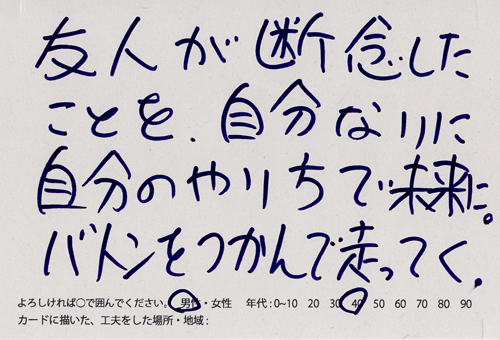 友人が断念した
ことを、自分なりに
自分のやりちで未来に。
バトンをつかんで走ってく.
よろしければ○で囲んでください。 男性・女性 年代:0~10 20 30 40 50 60 70 80 90
カードに描いた、工夫をした場所・地域: